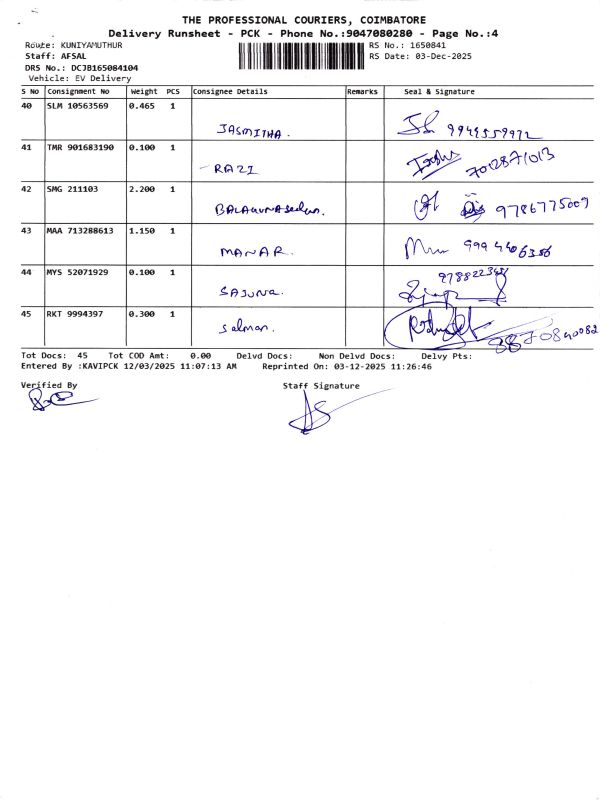 THE PROFESSIONAL COURIERS, COIMBATORE
Delivery Runsheet - PCK - Phone No.:9047080280 - Page No.:4
Route: KUNIYAMUTHUR RS No.: 1650841
Staff: AFSAL RS Date: 03-Dec-2025
DRS No.: DCJB165084104
Vehicle: EV Delivery
S No Consignment No Weight PCS Consignee Details Remarks Seal & Signature
40 SLM 10563569 0.465 1
JASMITHA. 9949559972
41 TMR 901683190 0.100 1
RAZI 7012871013
42 SMG 211103 2.200 1
9786775009
43 MAA 713288613 1.150 1
MANAR. 999 4406356
44 MYS 52071929 0.100 1
SAJUNA.
45 RKT 9994397 0.300 1
Salman. 8870840082
Tot Docs: 45 Tot COD Amt: 0.00 Delvd Docs: Non Delvd Docs: Delvy Pts:
Entered By :KAVIPCK 12/03/2025 11:07:13 AM Reprinted On: 03-12-2025 11:26:46
Verified By Staff Signature